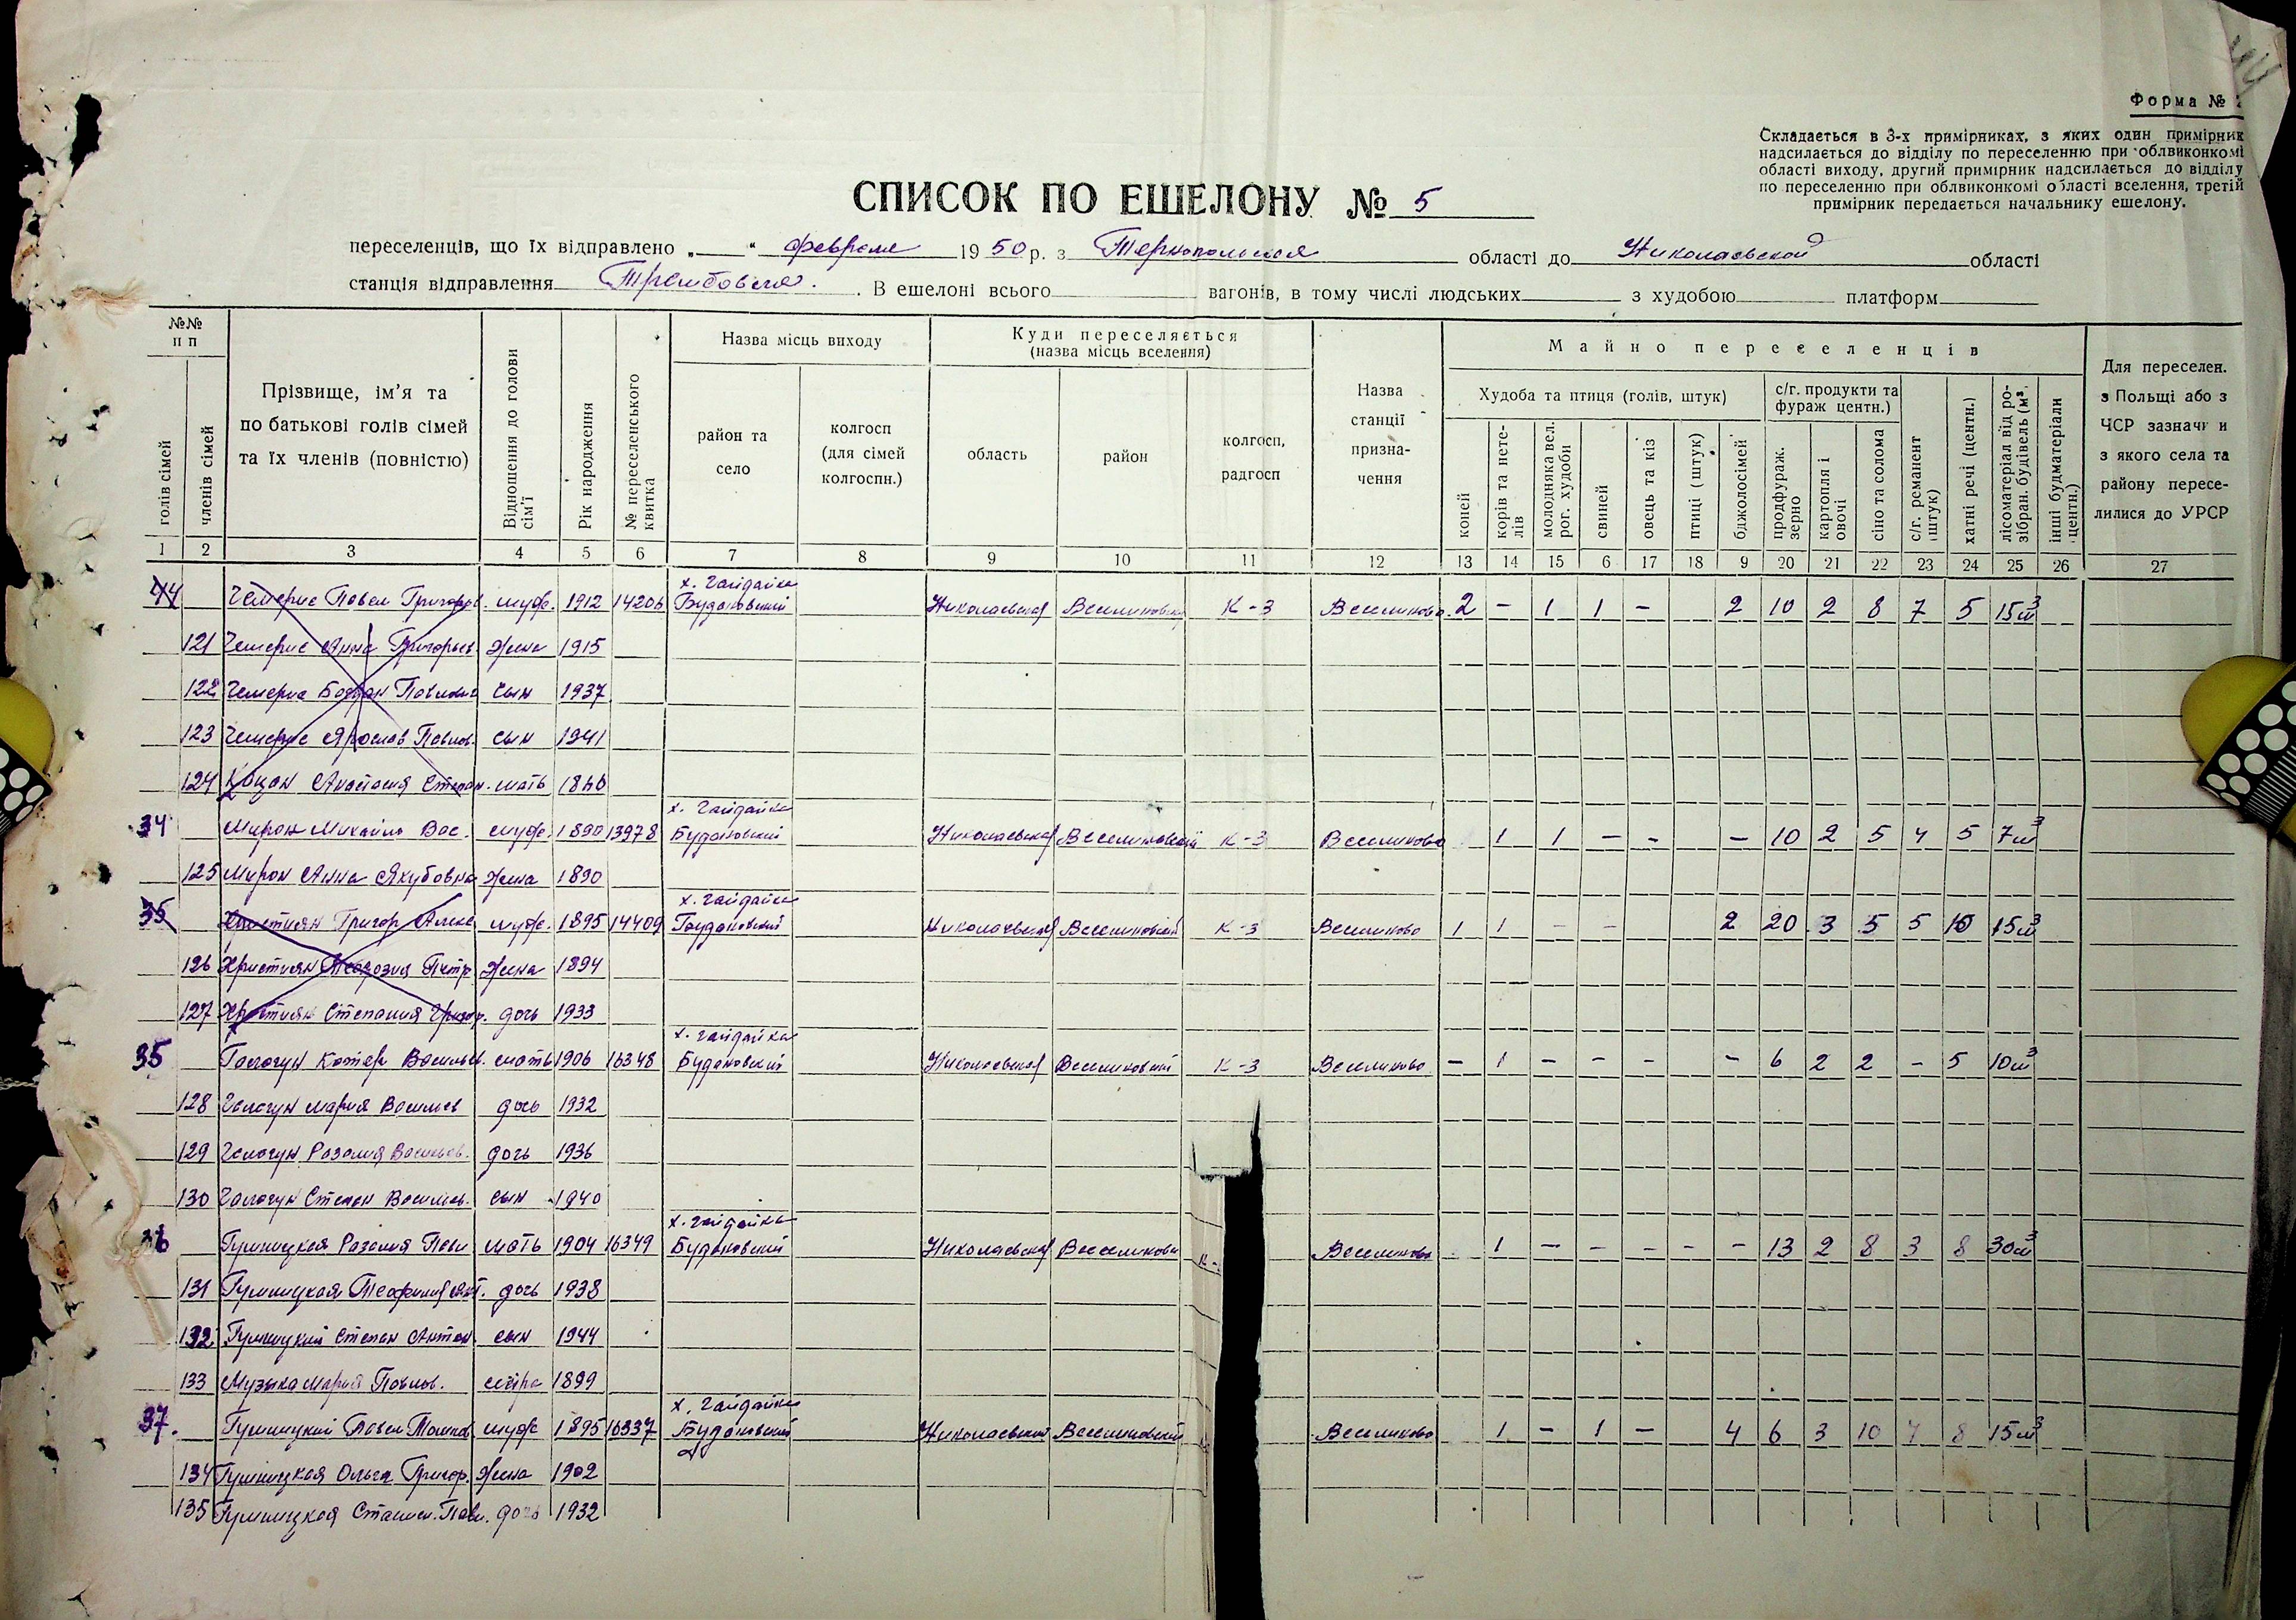 44
Форма №
Складається в 3-х примірниках, з яких один примірник
надсилається до відділу по переселенню при облвиконкомі
області виходу, другий примірник надсилається до відділу
по переселенню при облвиконкомі області вселення, третій
примірник передається начальнику ешелону.
СПИСОК ПО ЕШЕЛОНУ № 5
переселенців, що їх відправлено „ “ февраля 1950 р. з Тернопольской області до Николаевской області
станція відправлення Трембовля. В ешелоні всього вагонів, в тому числі людських з худобою платформ
№№ п п
голів сімей
членів сімей
Прізвище, ім’я та по батькові голів сімей та їх членів (повністю)
Відношення до голови сім’ї
Рік народження
№ переселенського квитка
Назва місць виходу
район та село
колгосп (для сімей колгоспн.)
Куди переселяється (назва місць вселення)
область
район
колгосп, радгосп
Назва станції призначення
Майно переселенців
Худоба та птиця (голів, штук)
коней
корів та нетелів
молодняка вел. рог. худоби
свиней
овець та кіз
птиці (штук)
бджолосімей
с/г. продукти та фураж центн.)
продфураж. зерно
картопля і овочі
сіно та солома
с/г. реманент (штук)
хатні речі (центн.)
лісоматеріал від розібран. будівель (м³
інші будматеріали (центн.)
Для переселен. з Польщі або з ЧСР зазначи и з якого села та району переселилися до УРСР
1 2 3 4 5 6 7 8 9 10 11 12 13 14 15 6 17 18 9 20 21 22 23 24 25 26 27
х. Гайдайка
44 Чемерис Павел Григоров. муж. 1912 14206 Будановский Николаевская Веселиновский К-3 Веселиново 2 - 1 1 - 2 10 2 8 7 5 15м³
121 Чемерис Анна Григорьев. жена 1915
122 Чемерис Богдан Павлович сын 1937
123 Чемерис Ярослав Павлов. сын 1941
124 Коцан Анастасия Степан. мать
х. Гайдайка
34 Мирон Михайло Вас. муж. 1890 13978 Будановский Николаевская Веселиновский К-3 Веселиново 1 1 - - - 10 2 5 4 5 7м³
125 Мирон Анна Якубовна жена 1890
х. Гайдайка
35 Християн Григор Алекс муж. 1895 14409 Будановский Николаевская Веселиновский К-3 Веселиново 1 1 - - 2 20 3 5 5 10 15м³
126 Християн Теодозия Петр. жена 1894
127 Християн Степания Григор. дочь 1933
х. Гайдайка
35 Галагун Катер Васильев. мать 1906 16348 Будановский Николаевская Веселиновский К-3 Веселиново - 1 - - - - 6 2 2 - 5 10м³
128 Галагун Мария Васильев дочь 1932
129 Галагун Розалия Васильев. дочь 1936
130 Галагун Степан Васильев. сын 1940
х. Гайдайка
36 Гушницкая Розалия Павл мать 1904 16349 Будановский Николаевская Веселиновский К- Веселиново 1 - - - - - 13 2 8 3 8 30м³
131 Гушницкая Теофилия Ант. дочь 1938
132 Гушницкий Степан Антон. сын 1944
133 Музыка Мария Павлов. сестра 1899
х. Гайдайка
37. Гушницкий Павел муж 1895 16337 Будановский Николаевский Веселиновский Веселиново 1 - 1 - 4 6 3 10 4 8 15м³
134 Гушницкая Ольга Григор. жена 1902
135 Гушницкая Станисл. Павл. дочь 1932